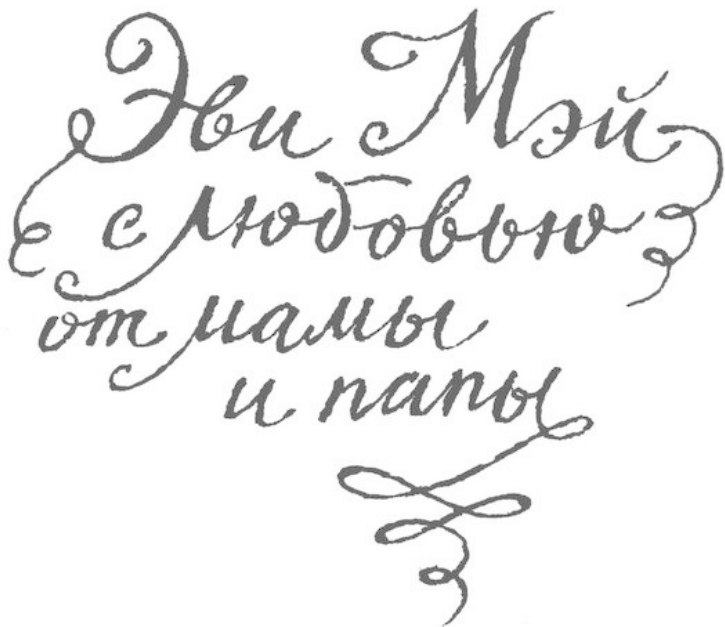 Эви Мэй
с любовью
от мамы
и папы